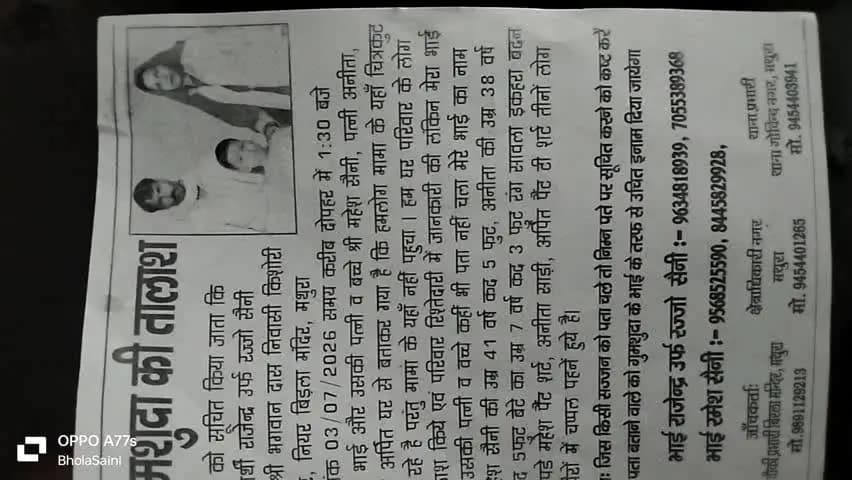 मशुदा की तालाश
को सूचित किया जाता कि
र्थी राजेन्द्र उर्फ रज्जो सैनी
श्री भगवान दास निवासी किशोरी
, नियर बिड़ला मंदिर, मथुरा
ांक 03/07/2026 समय करीब दोपहर में 1:30 बजे
भाई और उसकी पत्नी व बच्चे श्री महेश सैनी, पत्नी अनीता,
अर्पित घर से बताकर गया है कि हमलोग मामा के यहाँ चित्रकुट
रहे है परंतु मामा के यहाँ नहीं पहुचा। हम घर परिवार के लोग
ाश किये एवं परिवार रिश्तेदारी में जानकारी की लकिन मेरा भाई
उसकी पत्नी व वच्चे कहीं भी पता नहीं चला मेरे भाई का नाम
ेश सैनी की उम्र 41 वर्ष कद 5 फुट, अनीता की उम्र 38 वर्ष
द 5फुट बेटे का उम्र 7 वर्ष कद 3 फुट रंग सावला इकहरा बदन
पड़े महेश पैंट शर्ट, अनीता साड़ी, अर्पित पैंट टी शर्ट तीनों लोग
ैरों में चप्पल पहनें हुये है।
ः जिस किसी सज्जन को पता चले तो निम्न पते पर सूचित करने को कष्ट करें
पता बताने वाले को गुमशुदा के भाई के तरफ से उचित इनाम दिया जायेगा
भाई राजेन्द्र उर्फ रज्जो सैनी :- 9634818939, 7055389368
भाई रमेश सैनी :- 9568525590, 8445829928,
जाँचकर्ताः
चौकी प्रभारी बिरला मन्दिर, मथुरा
मो. 9891129213
क्षेत्राधिकारी नगर
मथुरा
मो. 9454401265
थाना प्रभारी
थाना गोविन्द नगर, मथुरा
मो. 9454403941
OPPO A77s
BholaSaini